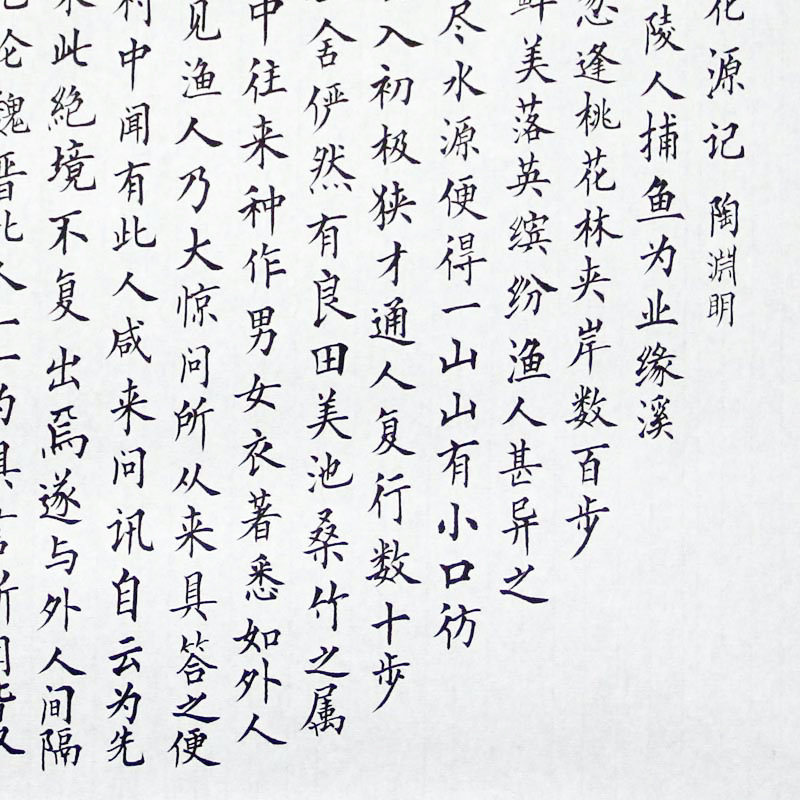 花源记 陶淵明
陵人捕鱼为业缘溪
忽逢桃花林夹岸数百步
鲜美落英缤纷渔人甚异之
尽水源便得一山山有小口彷
入初极狭才通人复行数十步
舍俨然有良田美池桑竹之属
中往来种作男女衣著悉如外人
见渔人乃大惊问所从来具答之便
村中闻有此人咸来问讯自云为先
来此絶境不复出焉遂与外人间隔
论魏晋此人一一为具言所闻皆叹